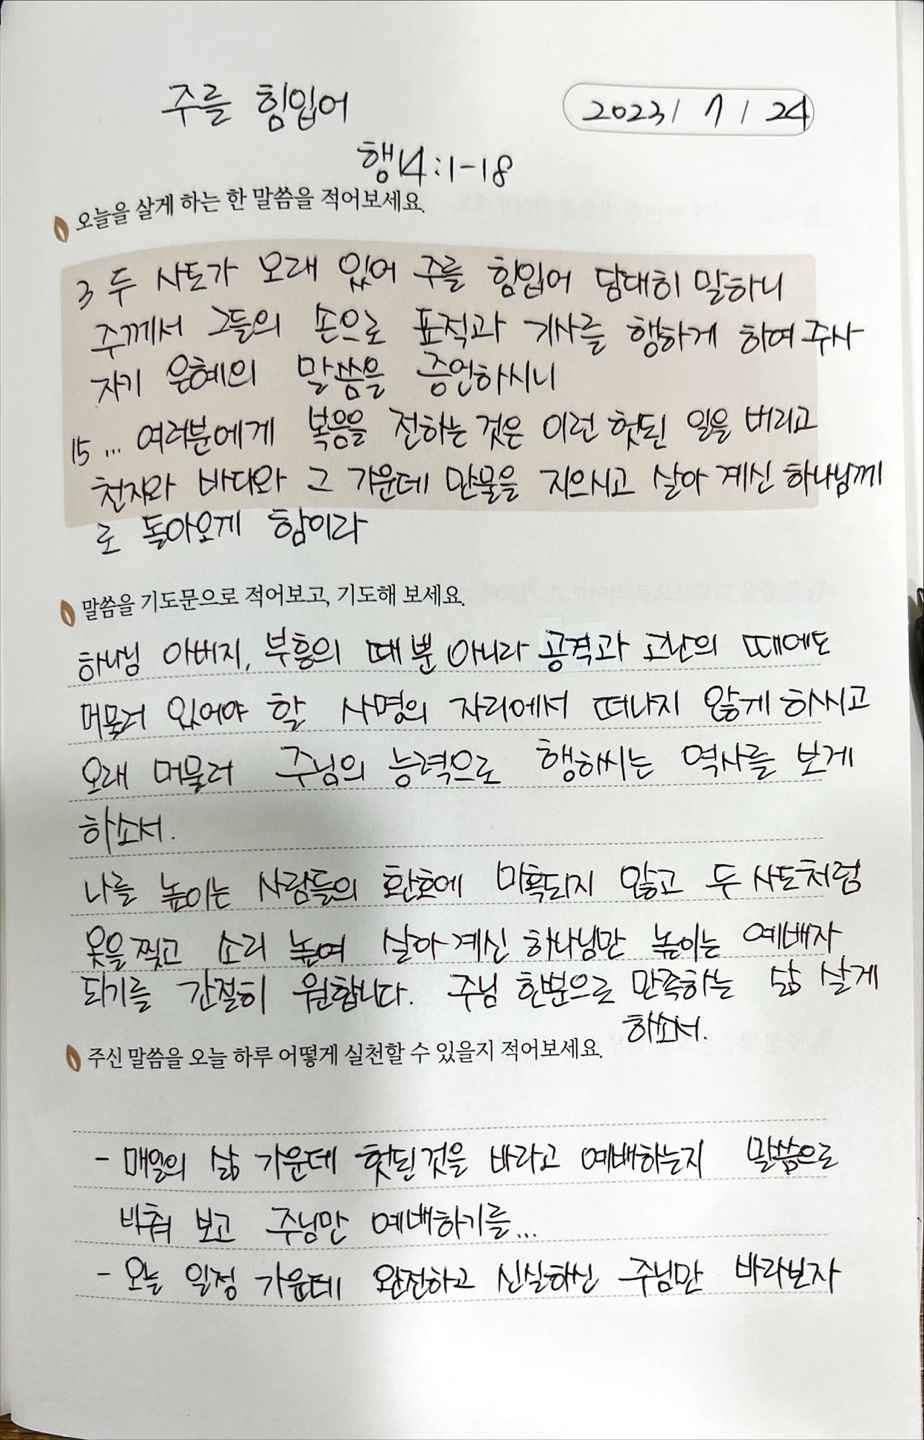 주를 힘입어
2023/ 7 / 24
행14:1-18
오늘을 살게 하는 한 말씀을 적어보세요.
3 두 사도가 오래 있어 주를 힘입어 담대히 말하니
주께서 그들의 손으로 표적과 기사를 행하게 하여 주사
자기 은혜의 말씀을 증언하시니
15 ... 여러분에게 복음을 전하는 것은 이런 헛된 일을 버리고
천지와 바다와 그 가운데 만물을 지으시고 살아 계신 하나님께
로 돌아오게 함이라
말씀을 기도문으로 적어보고, 기도해 보세요.
하나님 아버지, 부흥의 때 뿐 아니라 공격과 고난의 때에도
머물러 있어야 할 사명의 자리에서 떠나지 않게 하시고
오래 머물러 주님의 능력으로 행하시는 역사를 보게
하소서.
나를 높이는 사람들의 환호에 미혹되지 않고 두 사도처럼
옷을 찢고 소리 높여 살아 계신 하나님만 높이는 예배자
되기를 간절히 원합니다. 주님 한분으로 만족하는 삶 살게
하소서.
주신 말씀을 오늘 하루 어떻게 실천할 수 있을지 적어보세요.
- 매일의 삶 가운데 헛된것을 바라고 예배하는지 말씀으로
비춰 보고 주님만 예배하기를...
- 오늘 일정 가운데 완전하고 신실하신 주님만 바라보자